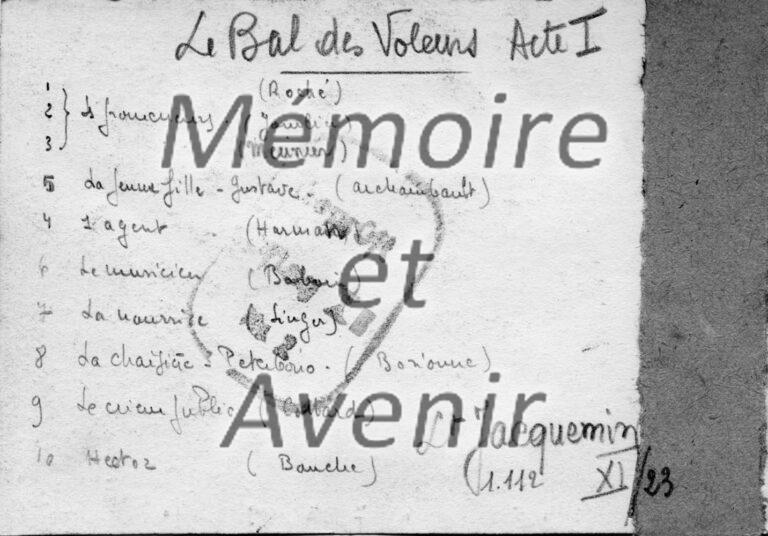 Le Bal des Voleurs Acte I
1 (Roché)
2
3 (Meunier)
5 La jeune fille - Gustave - (Archambault)
4 1 agent (Harmann)
6 Le musicien (Barbain)
7 La nourrice (Singer)
8 La chaisière - Peterbono - (Bonionne)
9 Le crieur public
10 Hector (Bauche)
Lt Jacquemin
1.112 XI/23
Mémoire
et
Avenir